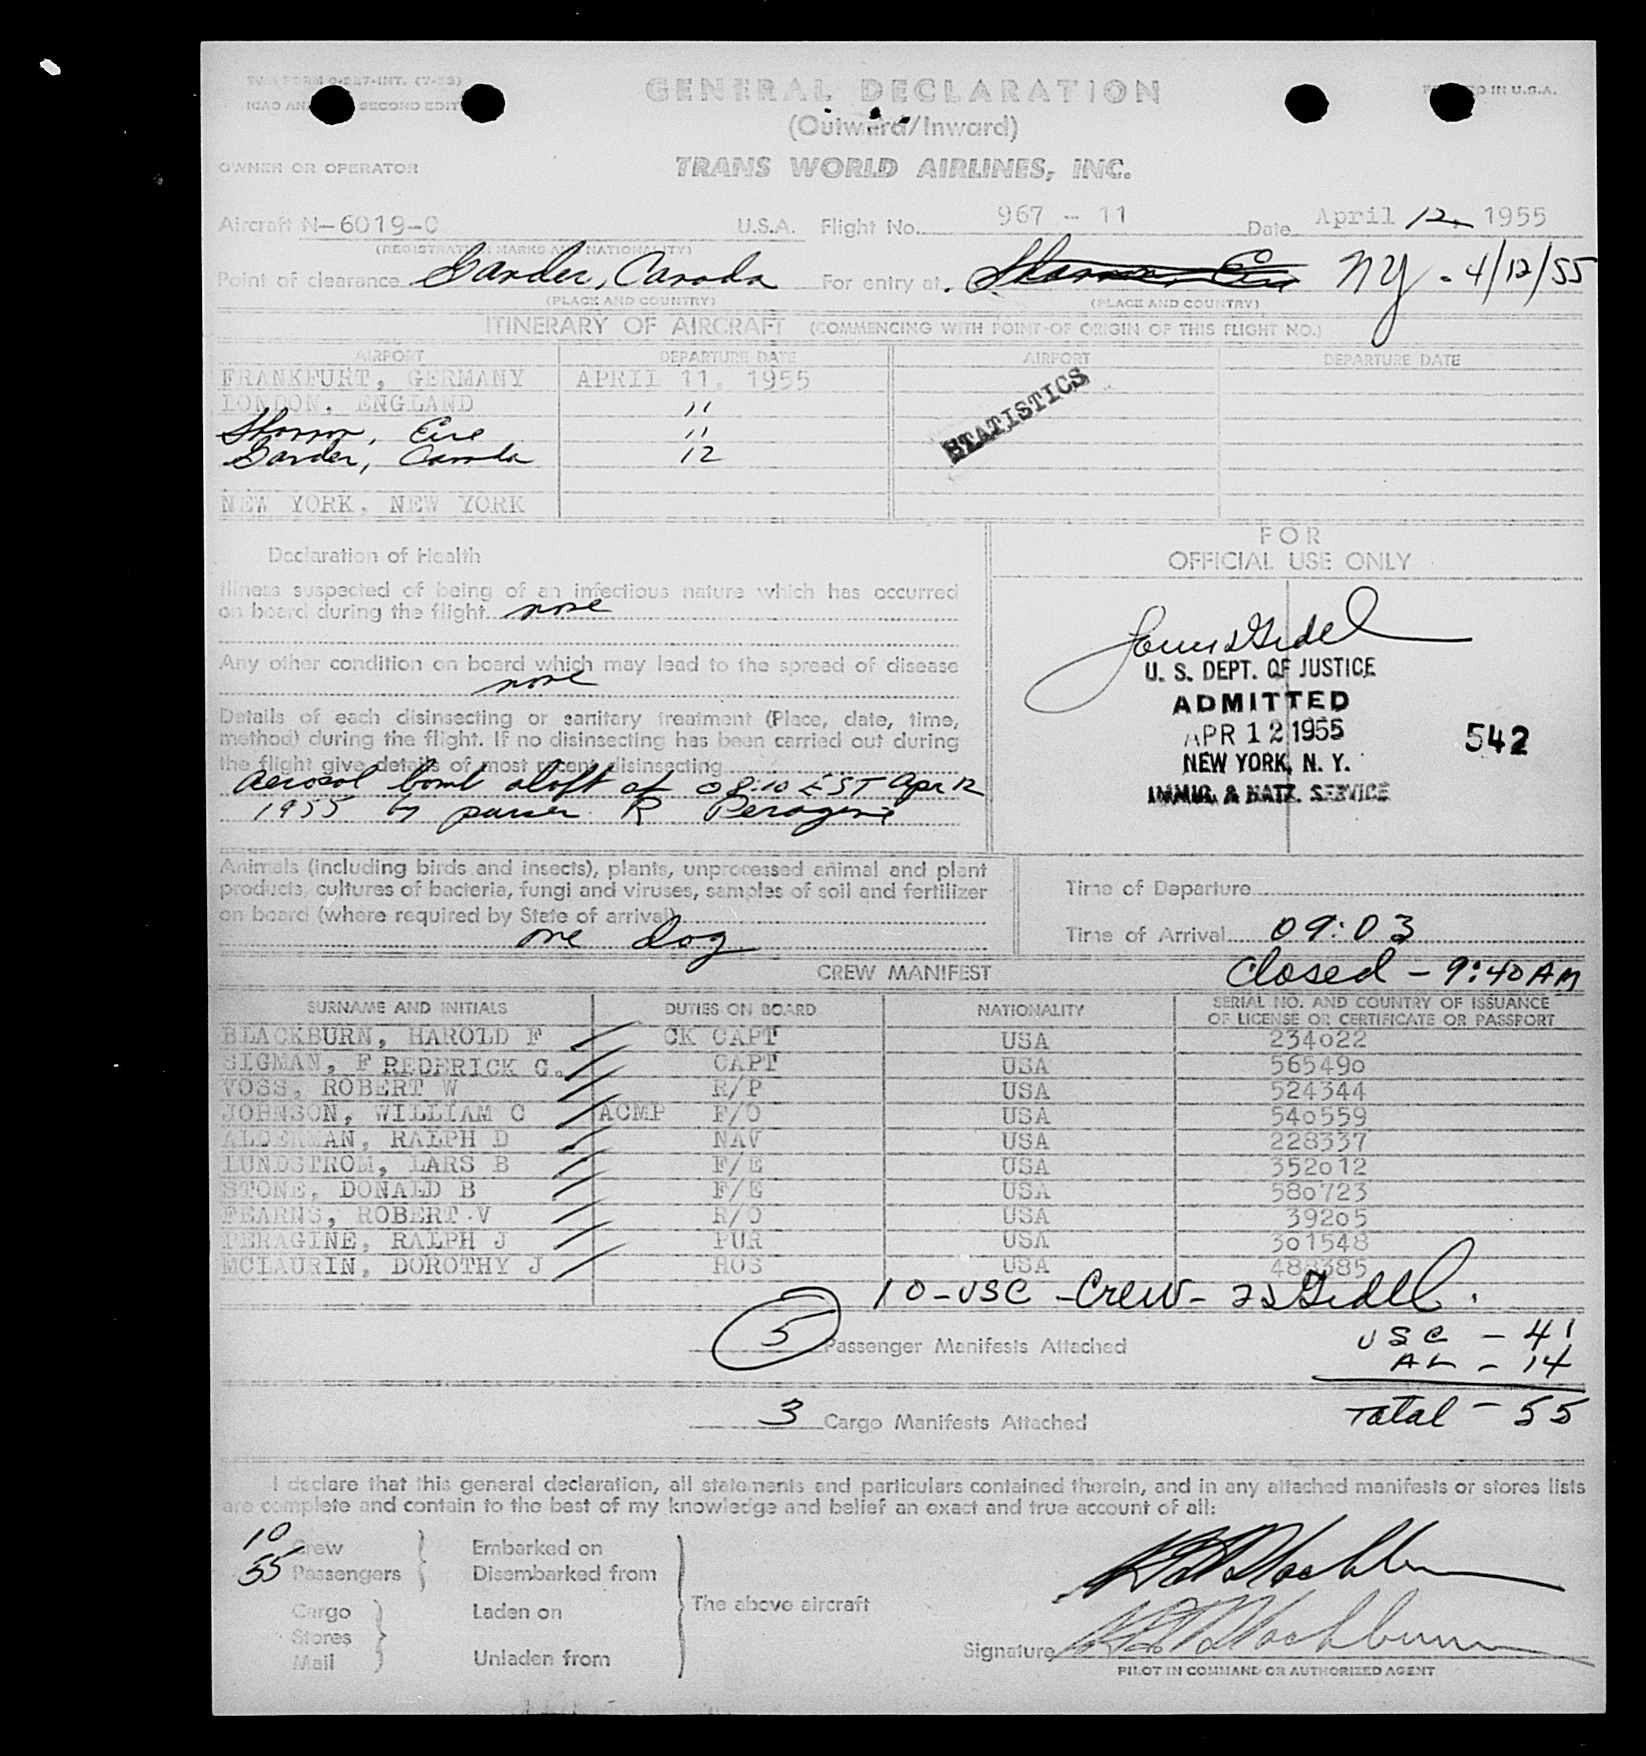 TWA FORM O-227-INT. (7-53)
GENERAL DECLARATION
IN U.S.A.
ICAO AN SECOND EDIT
(Outward/Inward)
OWNER OR OPERATOR
TRANS WORLD AIRLINES, INC.
Aircraft N-6019-C U.S.A. Flight No. 967 - 11 Date April 12, 1955
(REGISTRATION MARKS AND NATIONALITY)
Point of clearance Gander, Canada For entry at Shannon, Eire NY - 4/12/55
(PLACE AND COUNTRY) (PLACE AND COUNTRY)
ITINERARY OF AIRCRAFT (COMMENCING WITH POINT OF ORIGIN OF THIS FLIGHT NO.)
AIRPORT DEPARTURE DATE AIRPORT DEPARTURE DATE
FRANKFURT, GERMANY APRIL 11, 1955
LONDON, ENGLAND 11
Shannon, Eire 11
Gander, Canada 12
STATISTICS
NEW YORK, NEW YORK
FOR
OFFICIAL USE ONLY
Declaration of Health
Illness suspected of being of an infectious nature which has occurred
on board during the flight none
Any other condition on board which may lead to the spread of disease
none
Details of each disinsecting or sanitary treatment (Place, date, time,
method) during the flight. If no disinsecting has been carried out during
the flight give details of most recent disinsecting
Aerosol bomb aloft at 08:10 EST Apr 12
1955 by purser R Peragine
U. S. DEPT. OF JUSTICE
ADMITTED
APR 12 1955
NEW YORK, N. Y.
IMMIG. & NATZ. SERVICE
542
Animals (including birds and insects), plants, unprocessed animal and plant
products, cultures of bacteria, fungi and viruses, samples of soil and fertilizer
on board (where required by State of arrival)
one dog
Time of Departure
Time of Arrival 09:03
Closed - 9:40 AM
CREW MANIFEST
SURNAME AND INITIALS DUTIES ON BOARD NATIONALITY SERIAL NO. AND COUNTRY OF ISSUANCE
OF LICENSE OR CERTIFICATE OR PASSPORT
BLACKBURN, HAROLD F CK CAPT USA 234022
SIGMAN, FREDERICK G. CAPT USA 565490
VOSS, ROBERT W R/P USA 524344
JOHNSON, WILLIAM C ACMP F/O USA 540559
ALDERMAN, RALPH D NAV USA 228337
LUNDSTROM, LARS B F/E USA 352012
STONE, DONALD B F/E USA 580723
FEARNS, ROBERT V R/O USA 39205
PERAGINE, RALPH J PUR USA 301548
MCLAURIN, DOROTHY J HOS USA 488385
10 - USC - Crew -
5 Passenger Manifests Attached
USC - 41
AL - 14
Total - 55
3 Cargo Manifests Attached
I declare that this general declaration, all statements and particulars contained therein, and in any attached manifests or stores lists
are complete and contain to the best of my knowledge and belief an exact and true account of all:
10 Crew Embarked on
55 Passengers Disembarked from
The above aircraft
Cargo Laden on
Stores
Mail Unladen from
Signature H F Blackburn
PILOT IN COMMAND OR AUTHORIZED AGENT